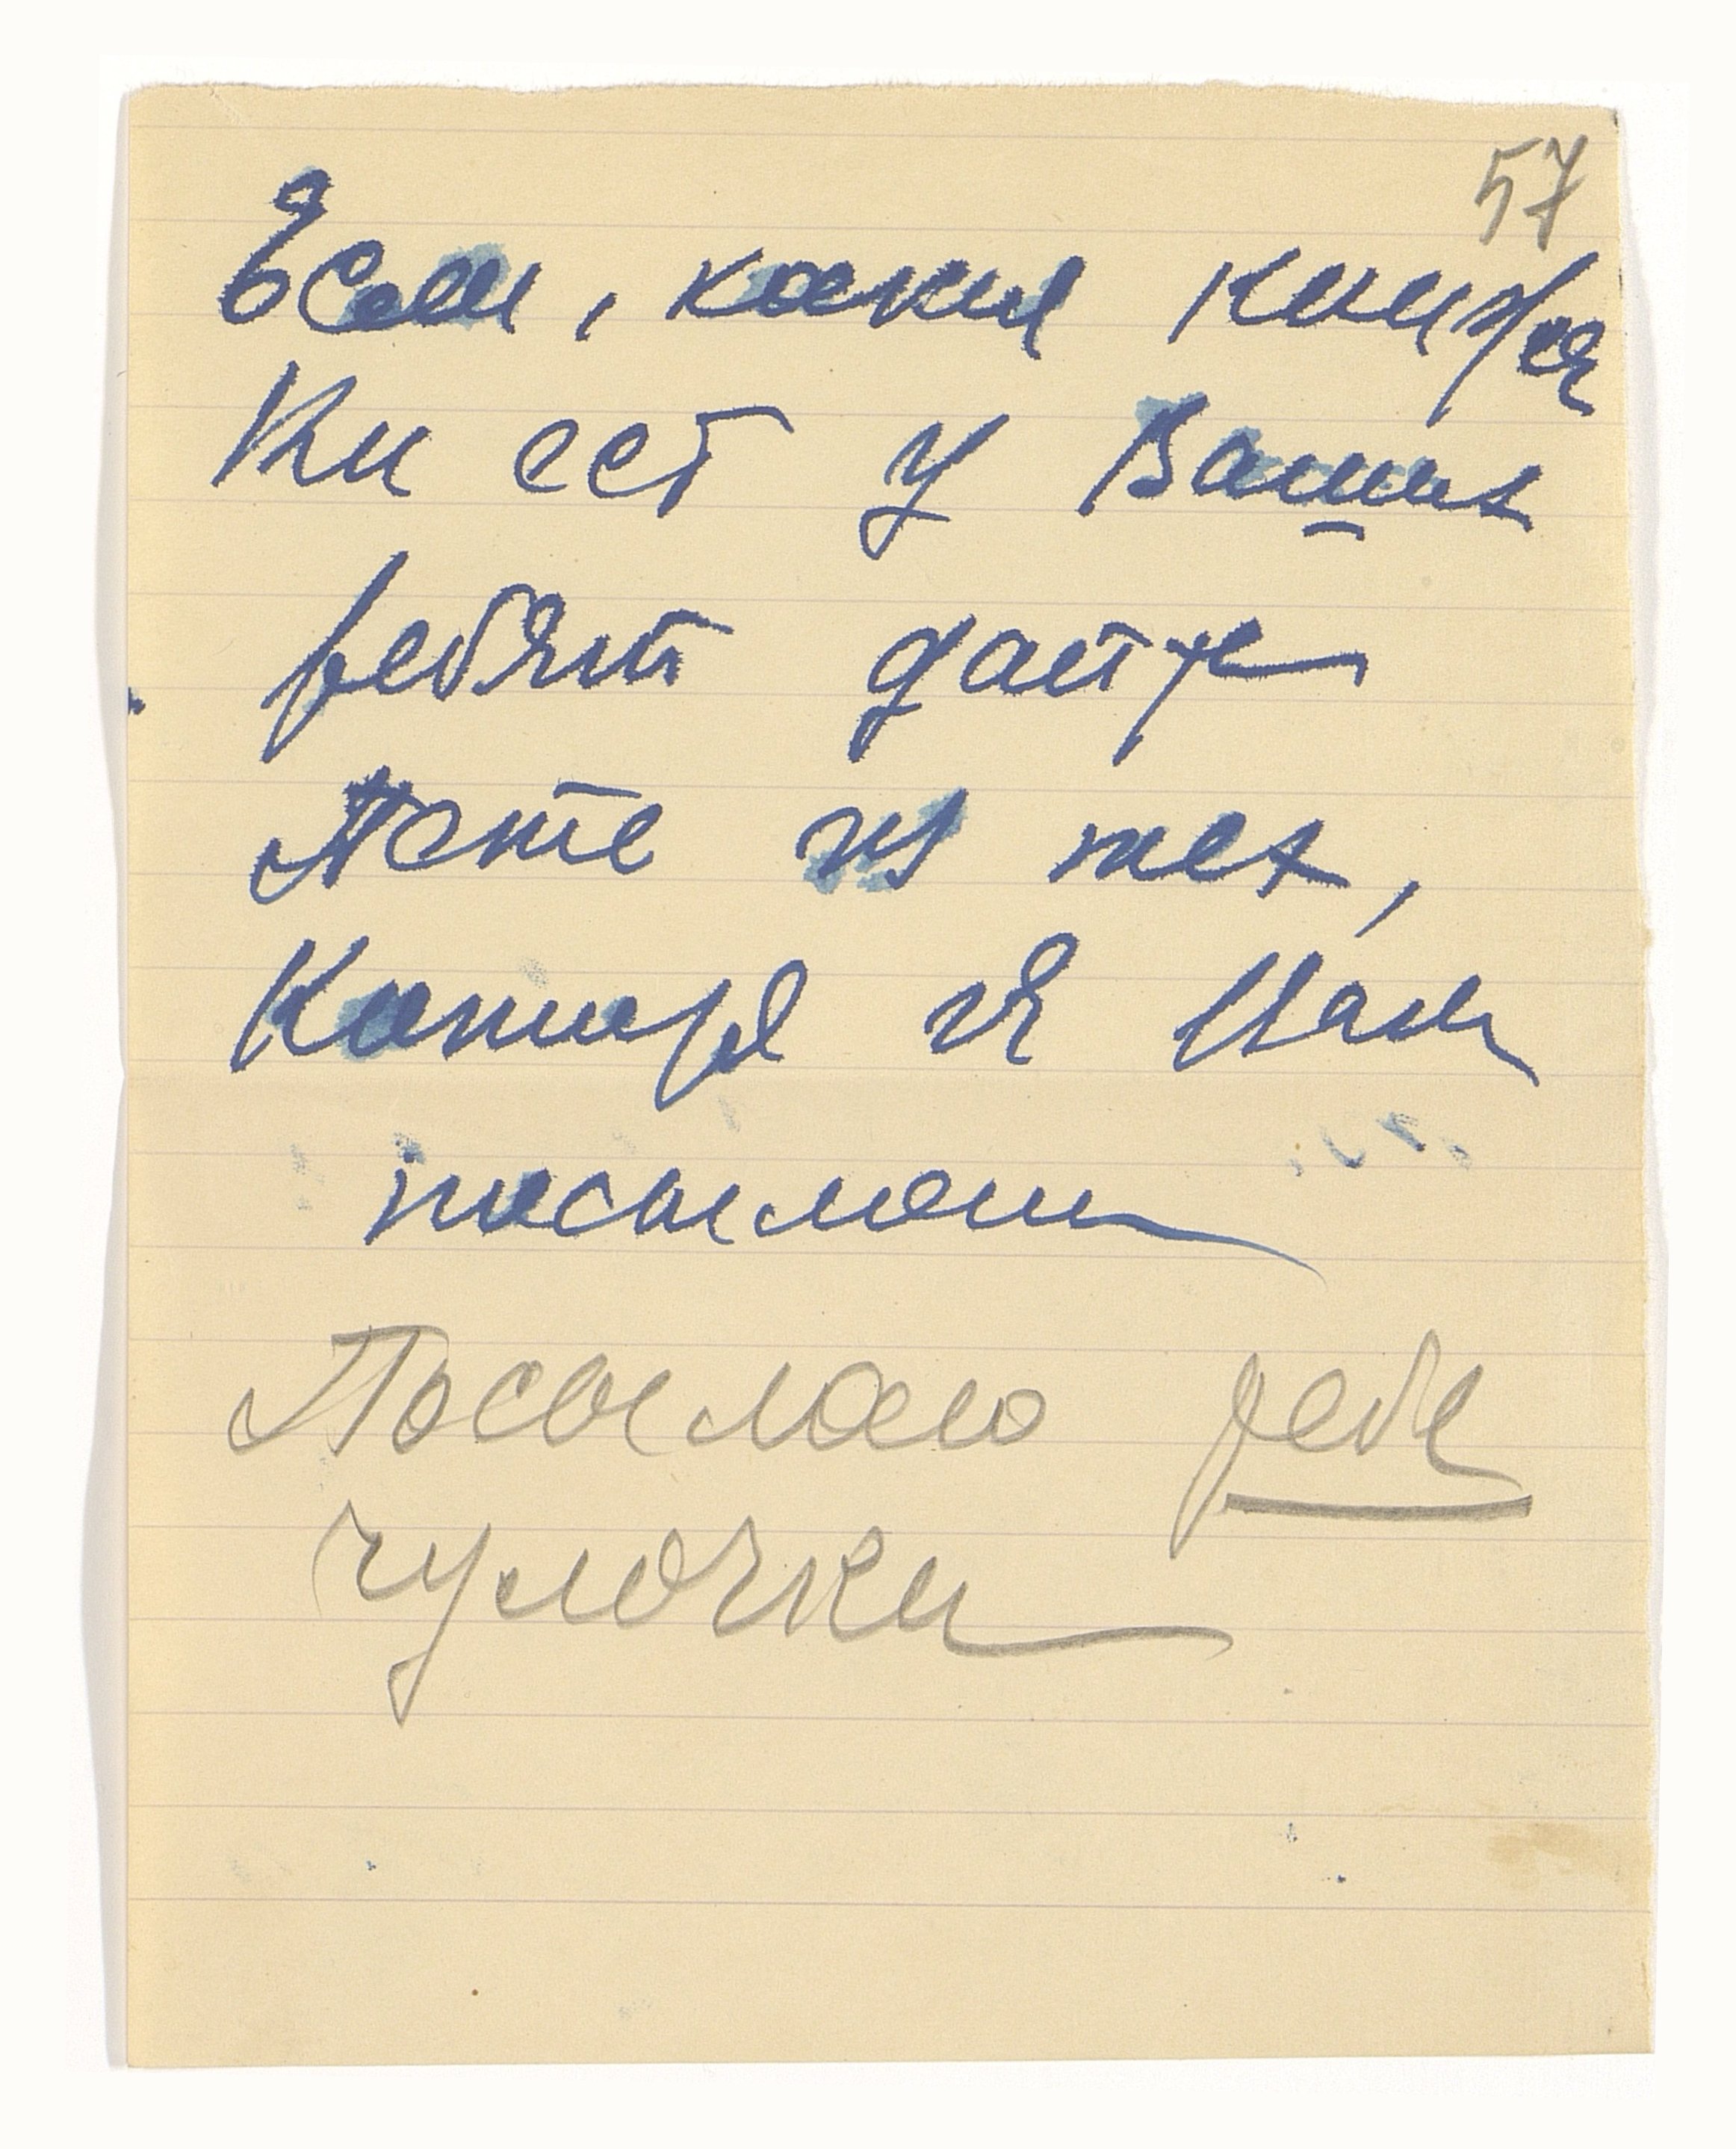 57
Если, какия книжа
ки ест у Ваших
ребят дайте
Пете из тех,
которыя я Вам
посылаю
Посылаю ребе
чулочки